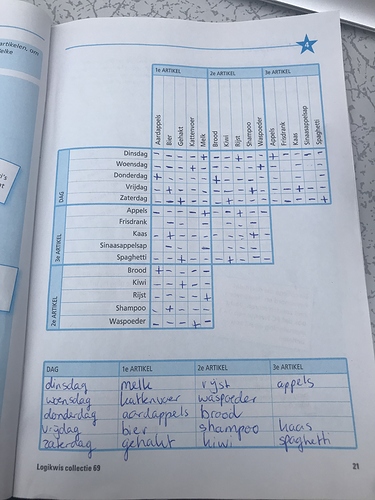 artikelen, om
elke
A
1e ARTIKEL 2e ARTIKEL 3e ARTIKEL
Aardappels Bier Gehakt Kattenvoer Melk Brood Kiwi Rijst Shampoo Waspoeder Appels Frisdrank Kaas Sinaasappelsap Spaghetti
DAG
Dinsdag
Woensdag
Donderdag
Vrijdag
Zaterdag
3e ARTIKEL
Appels
Frisdrank
Kaas
Sinaasappelsap
Spaghetti
2e ARTIKEL
Brood
Kiwi
Rijst
Shampoo
Waspoeder
DAG 1e ARTIKEL 2e ARTIKEL 3e ARTIKEL
dinsdag melk rijst appels
woensdag kattenvoer waspoeder
donderdag aardappels brood
vrijdag bier shampoo kaas
zaterdag gehakt kiwi spaghetti
Logikwis collectie 69 21